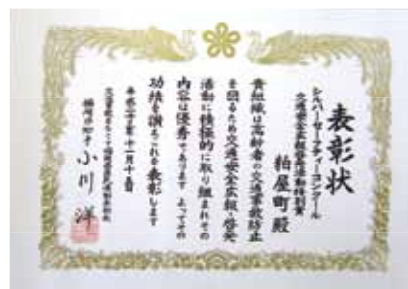 表彰状
シルバーセーフティーコンクール
交通安全広報啓発活動特別賞
粕屋町殿
貴組織は高齢者の交通事故防止
を図るため交通安全広報・啓発
活動に積極的に取り組まれその
内容は優秀であります よってその
功績を讃えこれを表彰します
平成二十三年十一月十五日
福岡県知事 小川洋